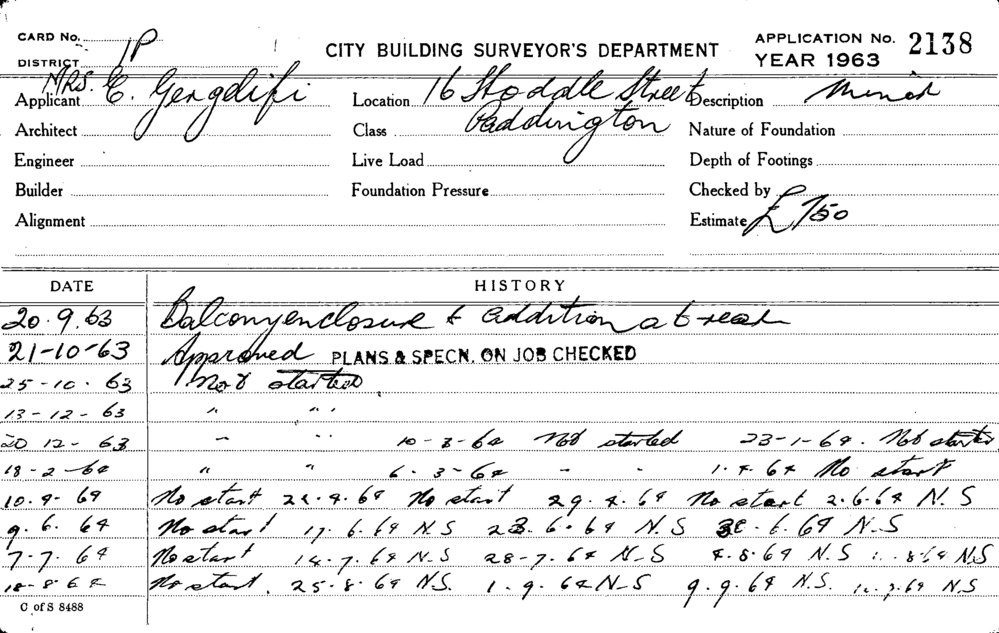 CARD No. 1P
CITY BUILDING SURVEYOR'S DEPARTMENT
APPLICATION No. 2138
DISTRICT
YEAR 1963
Applicant MRS. E. Location 16 Stoddle Street Description Minor
Architect Class Paddington Nature of Foundation
Engineer Live Load Depth of Footings
Builder Foundation Pressure Checked by
Alignment Estimate £750
DATE HISTORY
20.9.63 Balcony enclosure & addition at rear
21-10-63 Approved PLANS & SPECN. ON JOB CHECKED
25-10.63 Not started
13-12-63 " "
20 12-63 " " 10-3-64 Not started 23-1-64. Not started
18-2-64 " " 6-3-64 - - 1.4.64 No start
10.4-64 No start 22.4.64 No start 29.4.64 No start 2.6.64 N.S
9.6.64 No start 17.6.64 N.S 23.6.64 N.S 30.6.64 N-S
7-7.64 No start 14.7.64 N.S 28-7.64 N-S 4.8.64 N.S N.S
18-8.64 No start. 25.8.64 N.S. 1.9.64 N-S 9.9.64 N.S. N.S
C of S 8488